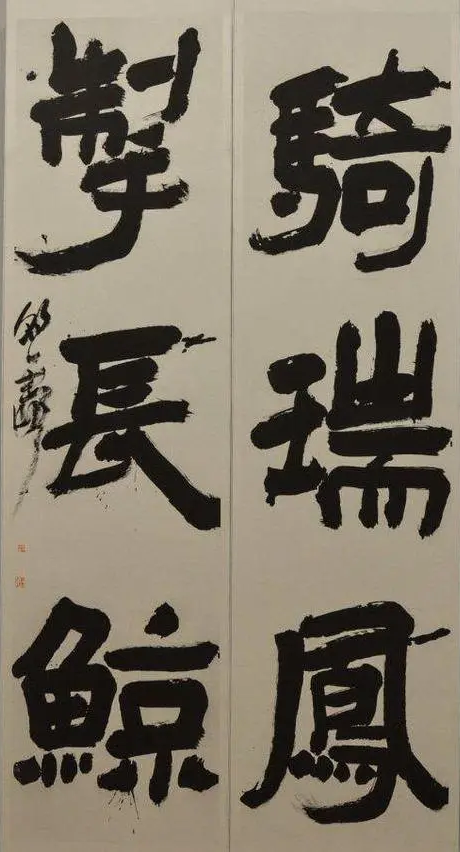 騎瑞鳳
掣長鯨